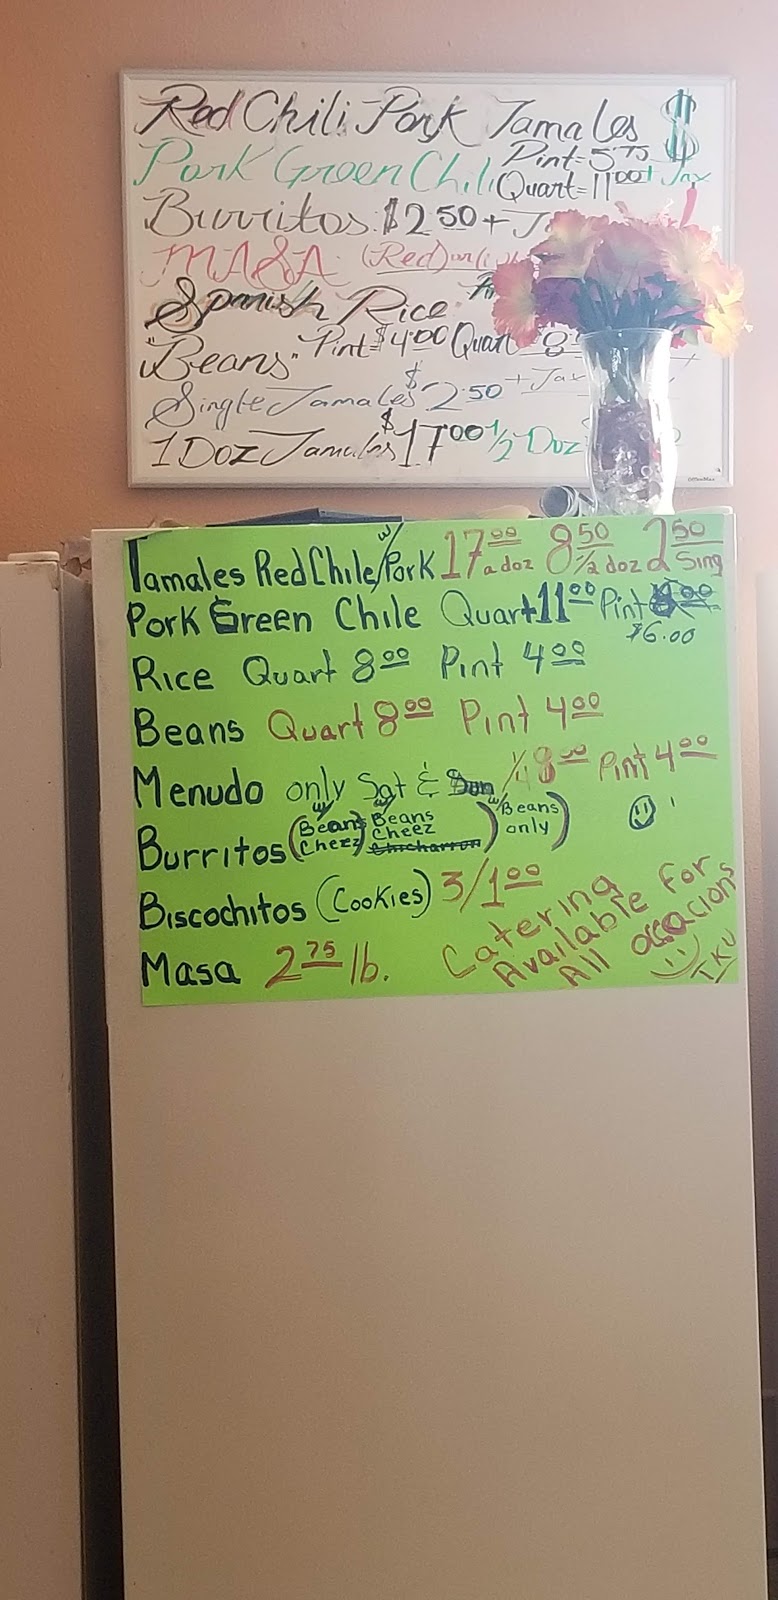 Red Chili Pork Tamales $
Pork Green Chili Pint=5.75
Quart=11.00+Tax
Burritos $2.50+
MASA (Red)
Spanish Rice
"Beans" Pint=$4.00 Quart
Single Tamales $2.50 +Tax
1 Doz Tamales $17.00 1/2 Doz
OfficeMax
Tamales Red Chile w/ Pork 17.00 a doz 8.50 1/2 doz 2.50 Sing
Pork Green Chile Quart 11.00 Pint
$6.00
Rice Quart 8.00 Pint 4.00
Beans Quart 8.00 Pint 4.00
Menudo only Sat & Sun 8.00 Pint 4.00
Burritos (w/ Beans Cheez) w/ Beans Cheez Chicharron) w/ Beans only)
Biscochitos (Cookies) 3/1.00
Masa 2.75 lb.
Catering
Available for
All occacions
TKU